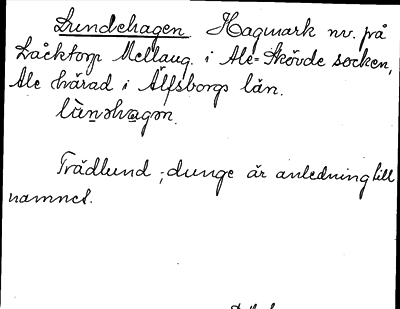 Lundehagen Hagmark nv. på
Låcktorp Mellaug. i Ale-Skövde socken,
Ale härad i Älfsborgs län.
Trädlund, dunge är anledning till
namnet.